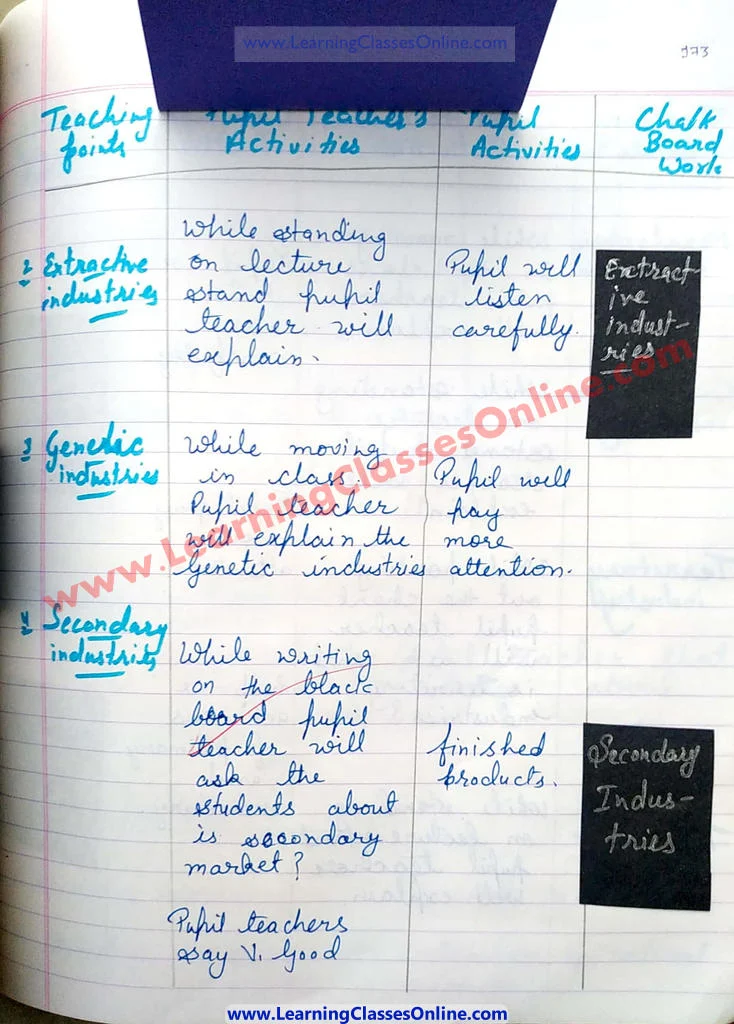 www.LearningClassesOnline.com
173
Teaching points
Pupil Teacher's Activities
Pupil Activities
Chalk Board Work
2 Extractive
industries
While standing
on lecture
stand pupil
teacher will
explain.
Pupil will
listen
carefully.
Extract-
ive
indust-
ries
3 Genetic
industries
While moving
in class.
Pupil teacher
will explain the
Genetic industries
Pupil will
pay
more
attention.
www.LearningClassesOnline.com
4 Secondary
industries
While writing
on the black
board pupil
teacher will
ask the
students about
is secondary
market?
finished
products.
Secondary
Indus-
tries
Pupil teachers
say V. Good
www.LearningClassesOnline.com